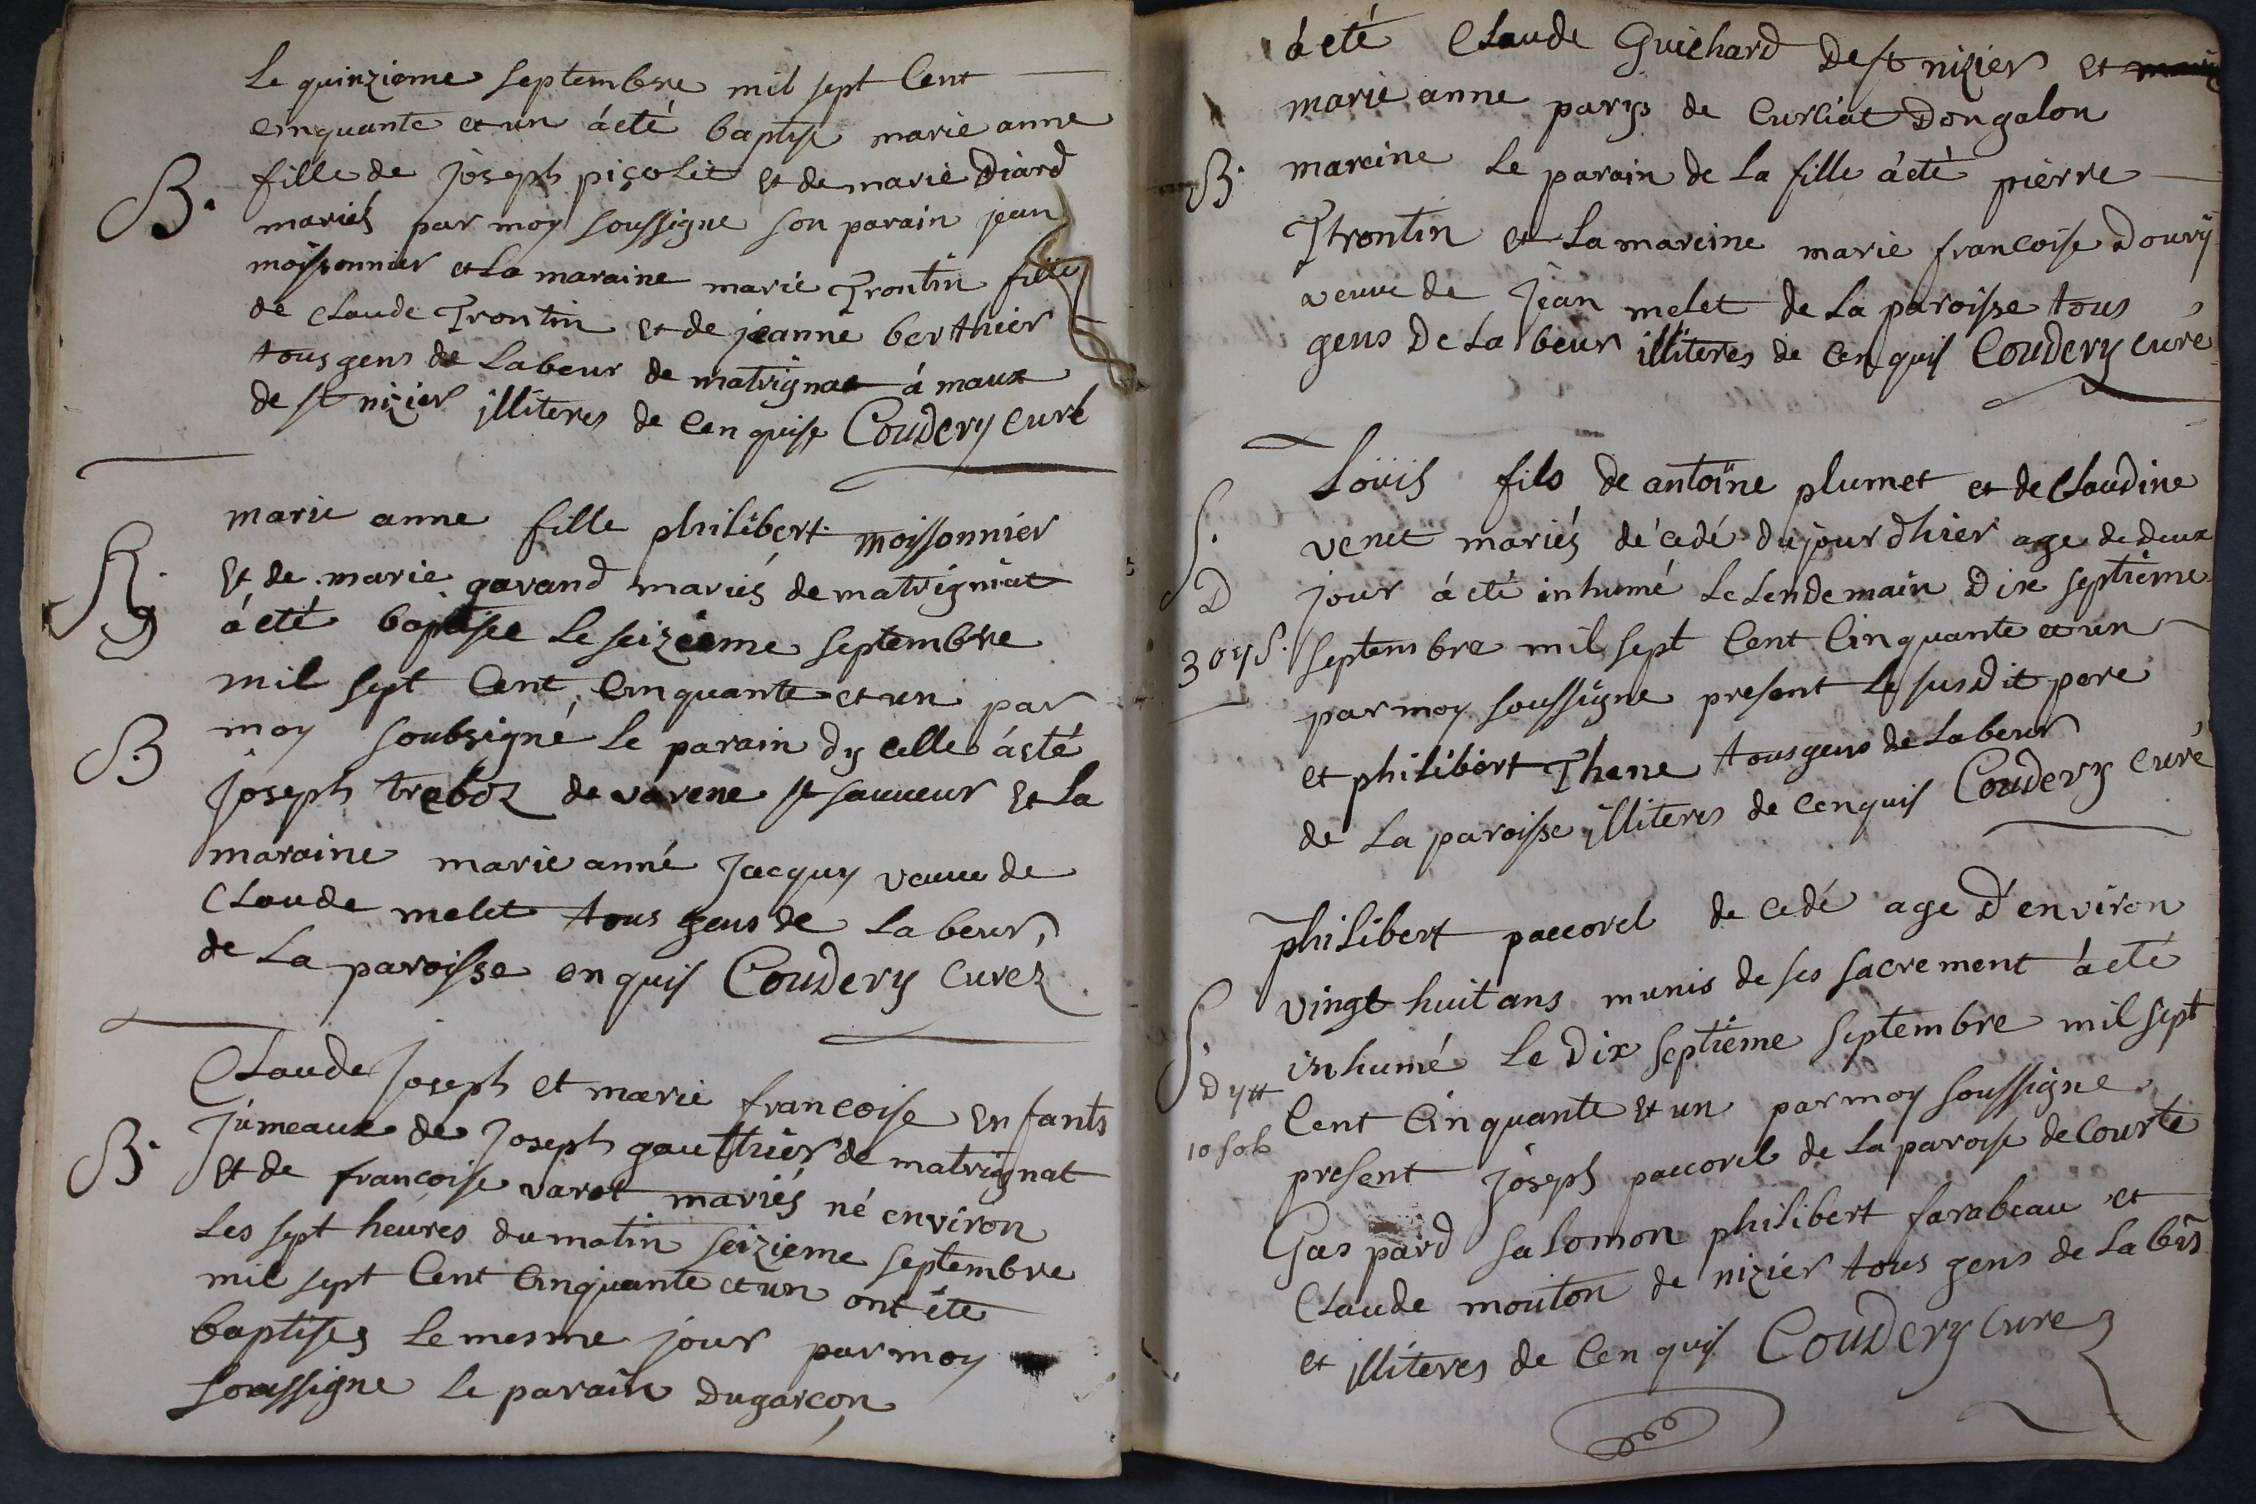 Le quinzieme septembre mil sept Cent
cinquante et un áété baptise marie anne
B.
fille de joseph piçolet et de marie Diard
mariés par moy soussigne son parain jean
moissonnier et La maraine marie Frontin fille
de claude Frontin et de jeanne berthier
tous gens de Labeur de matrignat á maux
de st nizier illiteres de Cenquise Coudery curé
marie anne fille philibert moissonnier
et de marie gavand mariés de matrigniat
áété baptisée Le seizieme septembre
mil sept Cent Cinquante et un par
B
moy soubsigné Le parain dy celle áeté
joseph traboz de varene st sauveur et La
maraine marie anne jacquy veuve de
Claude melet tous gens de Labeur
de La paroisse enquis Coudery Curez
Claude joseph et marie francoise Enfants
B.
jumeaux de joseph gauthier de matrignat
et de francoise varot mariés né environ
Les sept heures du matin seizieme septembre
mil sept Cent Cinquante et un ont été
baptises Le mesme jour par moy
soussigne Le parain dugarcon
áeté Claude Guichard de st nizier et
marie anne parys de Curciat Dongalon
B.
mareine Le parain de La fille áeté pierre
Frontin et La mareine marie francoise Doury
veuve de jean melet de La paroisse tous
gens De La beur illiteres de Cenquis Coudery curé
Loüis fils de antoine plumet et de Claudine
S.
venet mariés décedé dujourdhier age de deux
D
jour áeté inhumé Le Lendemain Dix septieme
septembre mil sept Cent Cinquante et un
par moy soussigne present Le susdit pere
et philibert Thene tous gens de Labeur
de La paroisse illiteres de Cenquis Coudery Curé
philibert paccorel de cedé age D'environ
vingt huit ans munis de ses sacrement áeté
S.
inhumé Le Dix septieme septembre mil sept
Cent Cinquante et un par moy soussigne
10 sols
present joseph paccorel de La paroise de Courte
Gaspard salomon philibert farabeau et
Claude mouton de nizier tous gens de Labr
et illiteres de Cenquis Coudery Cure